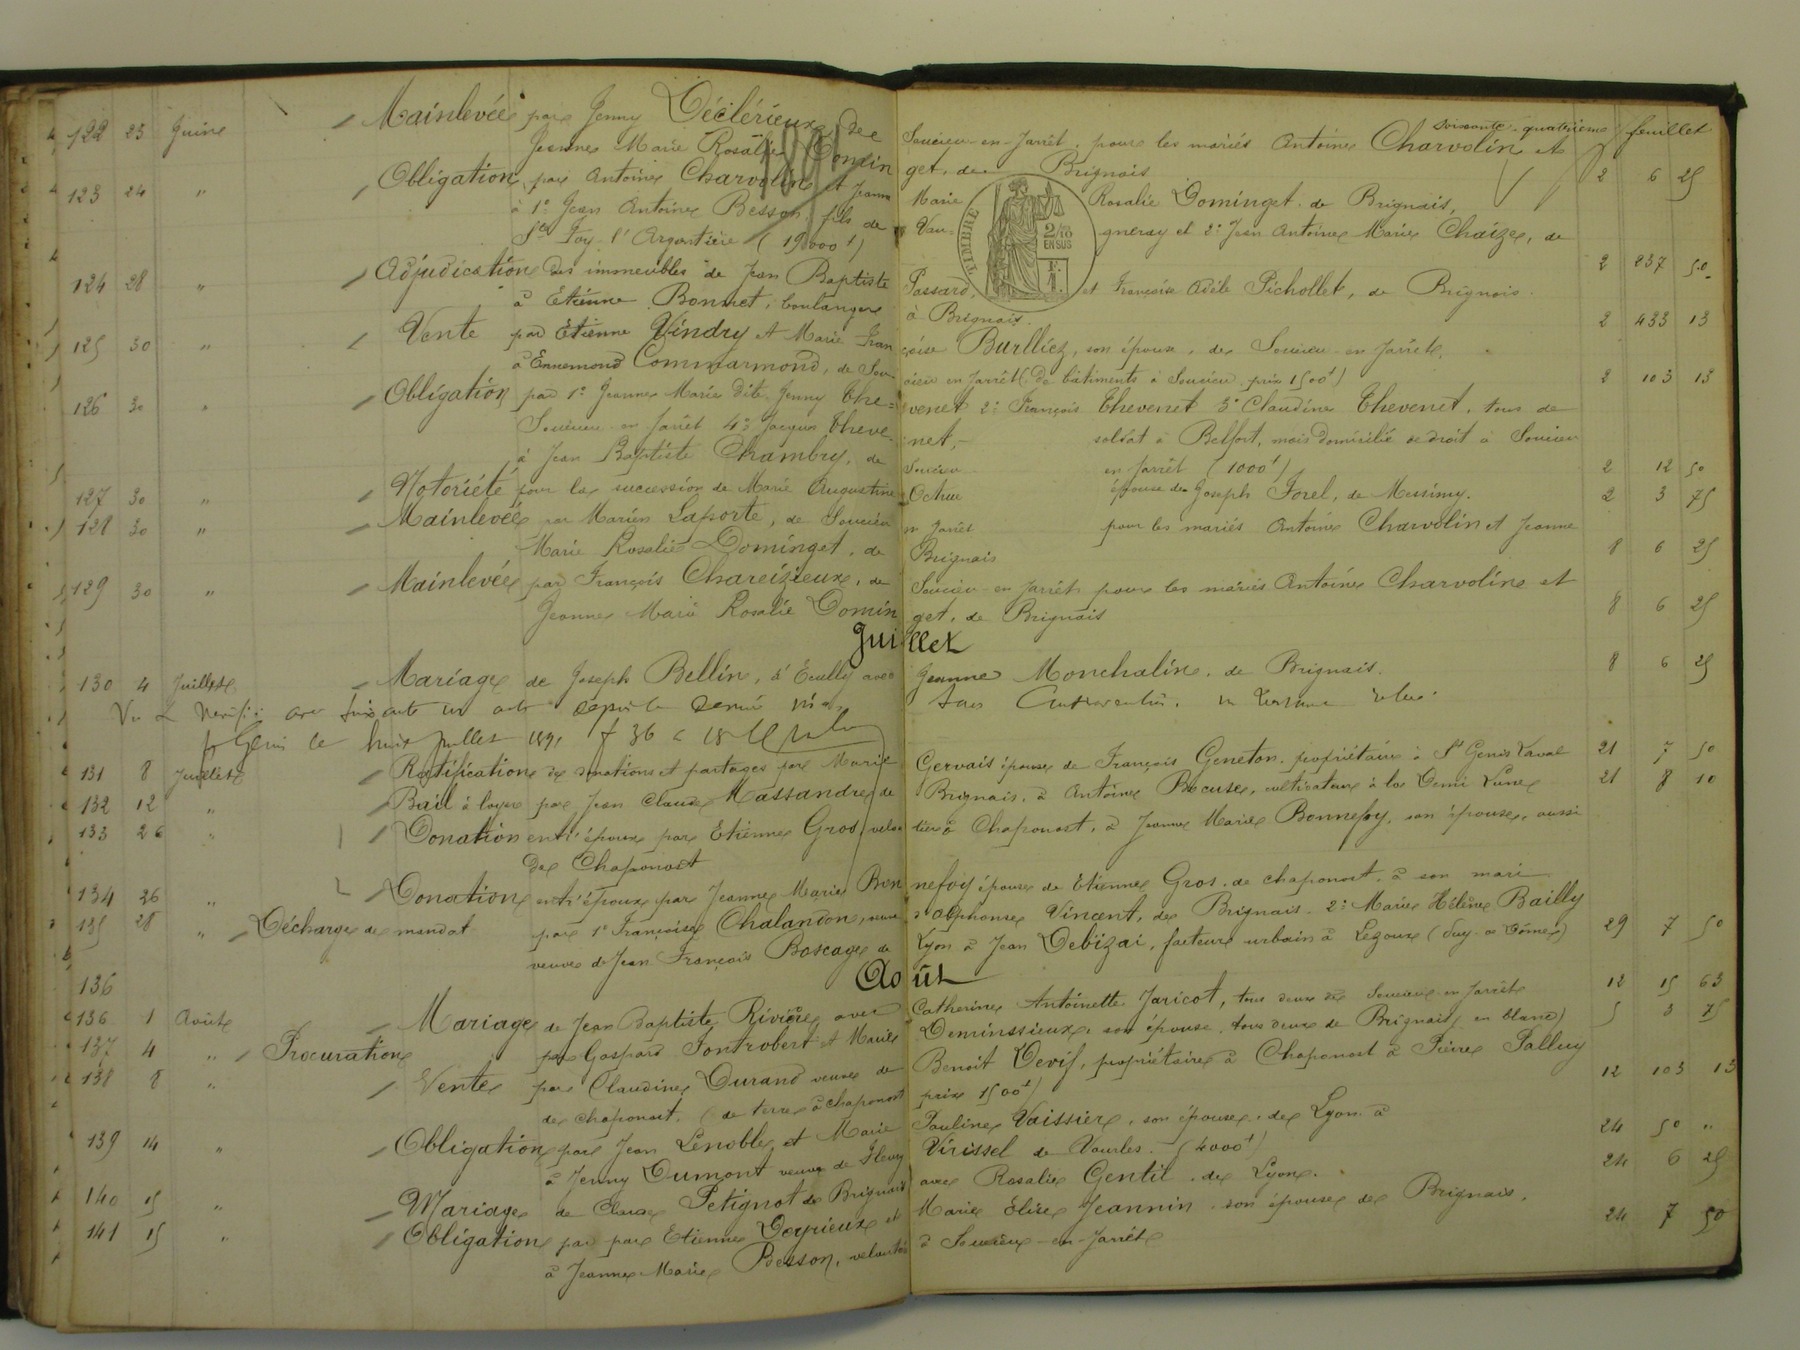 Soixante-quatorzième feuillet
122 25 Juin Mainlevée par Jenny Décilérieux de Soucieu-en-Jarrêt, pour les mariés Antoine Charvolin et
Jeanne Marie Rosalie Dominget, de Brignais 2 6 25
123 24 " Obligation par Antoine Charvolin et Jeanne Marie Rosalie Dominget de Brignais,
à 1° Jean Antoine Besson, fils de Vaugneray et 2° Jean Antoine Marie Chaize, de
Ste Foy l'Argentière (19000 f) 2 237 50
TIMBRE 2/10 EN SUS
124 28 " Adjudication des immeubles de Jean Baptiste Passard, et Françoise Adèle Pichollet, de Brignais
à Etienne Bonnet, boulanger à Brignais. 2 433 13
125 30 " Vente par Etienne Vindry et Marie Françoise Burlliez, son épouse, de Soucieu en Jarrêt,
à Ennemond Commarmond, de Soucieu en Jarrêt (De bâtiments à Soucieu prix 1500 f) 2 103 13
126 30 " Obligation par 1° Jeanne Marie dite Jenny Thevenet 2° François Thevenet 3° Claudine Thevenet, tous de
Soucieu en Jarrêt 4° Jacques Thevenet, soldat à Belfort, mais domicilié de droit à Soucieu
à Jean Baptiste Chambry, de Soucieu en Jarrêt (1000 f) 2 12 50
127 30 " Notoriété pour la succession de Marie Augustine Octrue épouse de Joseph Forel, de Messimy. 2 3 75
128 30 " Mainlevée par Marien Laporte, de Soucieu en Jarrêt pour les mariés Antoine Charvolin et Jeanne
Marie Rosalie Dominget, de Brignais 8 6 25
129 30 " Mainlevée par François Chareizieux, de Soucieu-en-Jarrêt pour les mariés Antoine Charvolin et
Jeanne Marie Rosalie Dominget, de Brignais 8 6 25
Juillet
130 4 Juillet Mariage de Joseph Bellin, d'Ecully avec Jeanne Monchalin, de Brignais. 8 6 25
Vu & vérifié soixante un actes depuis le dernier visa, sans contravention.
St Genis le huit juillet 1891 f 36 c 18
131 8 Juillet Ratification de donations et partages par Marie Gervais épouse de François Geneton, propriétaire à St Genis Laval 21 7 50
132 12 " Bail à loyer par Jean Claude Massandre de Brignais, à Antoine Bocuse, cultivateur à la Demi Lune 21 8 10
133 26 " Donation entr'époux par Etienne Gros, veloutier à Chaponost, à Jeanne Marie Bonnefoy, son épouse, aussi
de Chaponost
134 26 " Donation entr'époux par Jeanne Marie Bonnefoy épouse de Etienne Gros, de chaponost, à son mari
135 28 " Décharge de mandat par 1° Françoise Chalandon, veuve d'Alphonse Vincent, de Brignais 2° Marie Hélène Bailly
veuve de Jean François Boscage de Lyon à Jean Debizai, facteur urbain à Lezoux (Puy de Dôme) 29 7 50
Août
136
136 1 Août Mariage de Jean Baptiste Rivière avec Catherine Antoinette Jaricot, tous deux de Soucieu-en-Jarrêt 12 15 63
137 4 " Procuration par Gaspard Fontrobert et Marie Deminssieux, son épouse, tous deux de Brignais (en blanc) 5 3 75
138 8 " Vente par Claudine Durand veuve de Benoit Devif, propriétaire à Chaponost à Pierre Palluy
de Chaponost. (de terre à chaponost prix 1500 f) 12 103 13
139 14 " Obligation par Jean Lenoble et Marie Pauline Vaissière, son épouse, de Lyon à
à Jenny Dumont veuve de Fleury Virissel de Vourles. (4000 f) 24 50 "
140 15 " Mariage de Petignot de Brignais avec Rosalie Gentil, de Lyon. 24 6 25
141 15 " Obligation par Etienne Deyrieux et Marie Elise Jeannin son épouse de Brignais,
à Jeanne Marie Besson, veloutière à Soucieu-en-Jarrêt 24 7 50